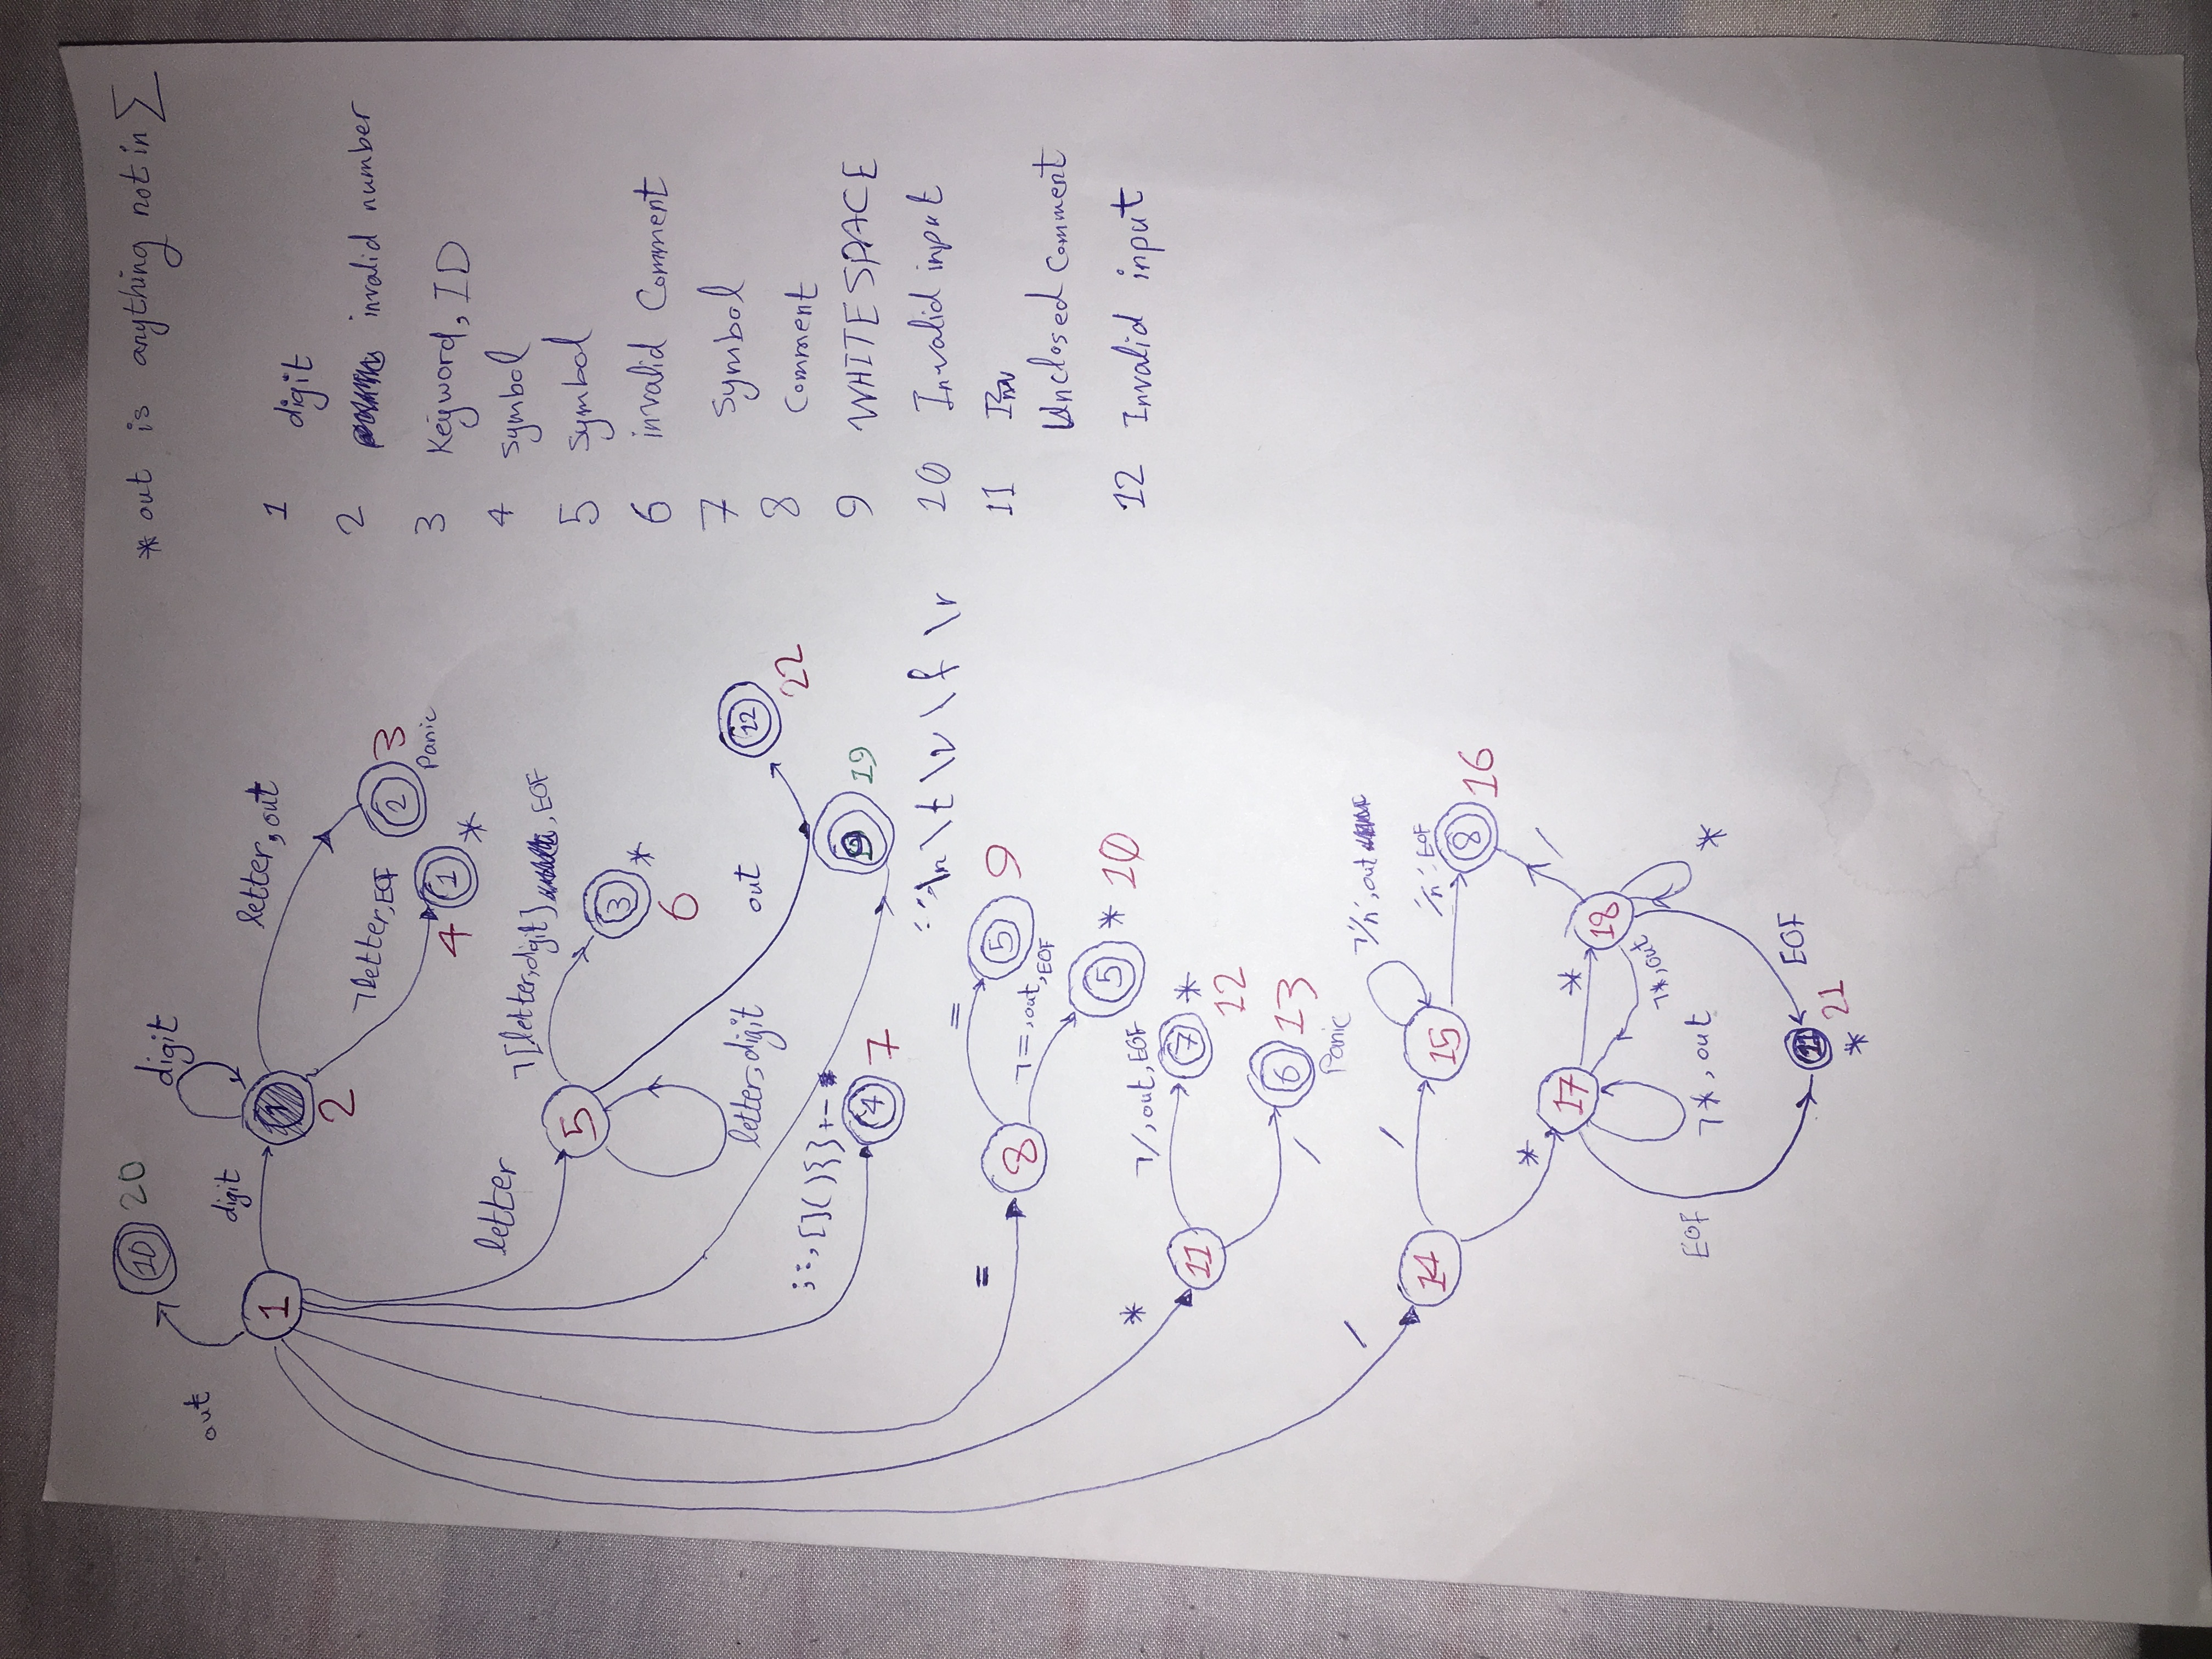 10 20
* out is anything not in Σ
out
digit
digit
1
2
letter, out
¬letter, EOF
2 3
Panic
4 1 *
letter
¬[letter, digit] , EOF
5
3 *
6
letter, digit
out
12
22
; : , [ ] ( ) { } + -
4 7
9 19
\n \t \v \f \r
=
8
=
5 9
¬=, out, EOF
5 * 10
*
11
¬/, out, EOF
7 *
12
6 13
/
Panic
/
14
/
15
¬'\n', out
'\n', EOF
8 16
*
17
*
18
/
¬*, out
¬*, out
*
EOF
EOF
11
21
*
1 digit
2 invalid number
3 Keyword, ID
4 Symbol
5 Symbol
6 invalid Comment
7 Symbol
8 Comment
9 WHITESPACE
10 Invalid input
11
Unclosed Comment
12 Invalid input